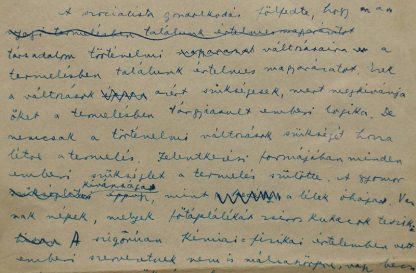 A szocialista gondolkodás fölfedte, hogy
társadalom történelmi változásaira a
termelésben találunk értelmes magyarázatot. Ezek
a változások azért szükségesek, mert megkívánja
őket a termelésben tárgyiasult emberi logika. De
nemcsak a történelmi változások szükségét hozza
létre a termelés. Jelentkezési formájában minden
emberi szükséglet a termelés szülötte. A gyomor
kívánságai éppúgy, mint a lélek óhajai. Van
nak népek, melyek főtáplálékát zsíros kukacok teszik
A szigorúan kémiai-fizikai értelemben vett
emberi szervezetnek nem is